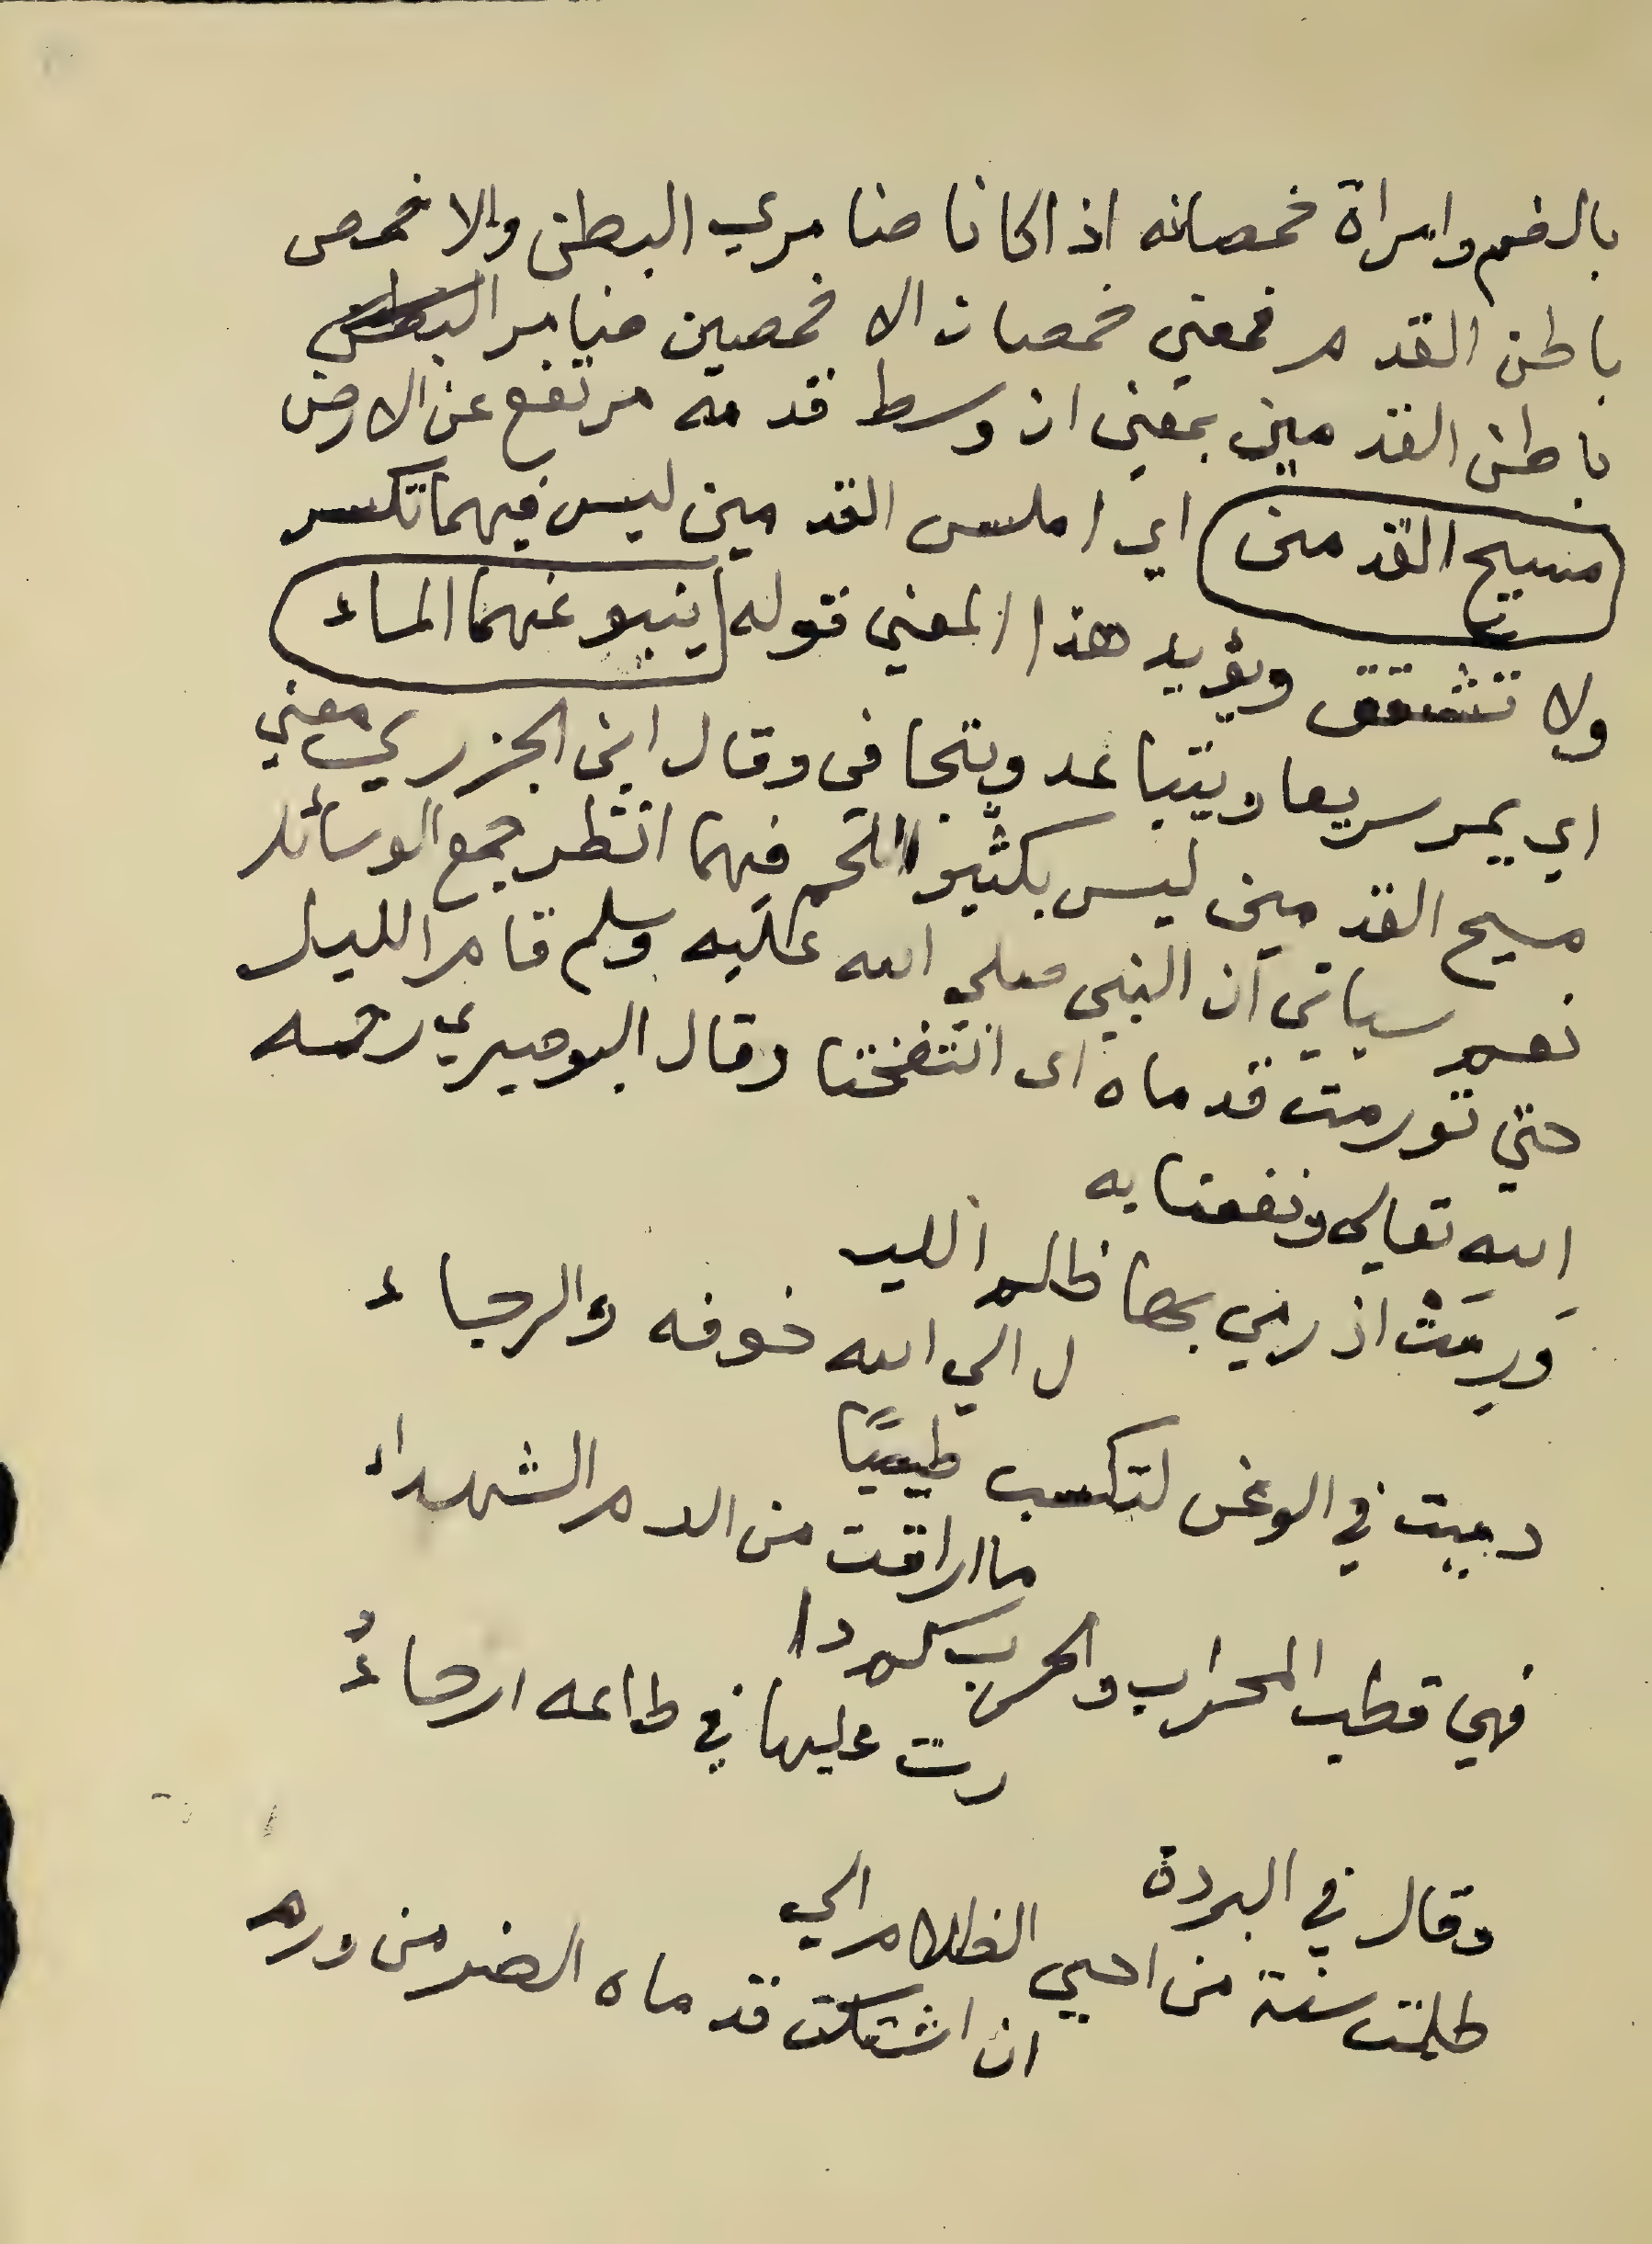 بالضم وامراة خمصانه اذا كانا ضامري البطن والاخمص
باطن القدم فمعنى خمصان الاخمصين ضامر البطن
باطن القدمين بمعنى ان وسط قدمه مرتفع عن الارض
مسيح القدمين اي املس القدمين ليس فيهما تكسر
ولا تشقق ويؤيد هذا المعني قوله ينبو عنهما الماء
اي يمر سريعا ويتباعد ويتجافى وقال ابن الجزري معني
مسيح القدمين ليس بكثير اللحم فيهما انظر جمع الوسائل
نعم سياتي ان النبي صلي الله عليه وسلم قام الليل
حتي تورمت قدماه اى انتفختا وقال البوصيري رحمه
الله تعالى ونفعنا به
وَرِمَتْ اذ رمي بها ظلم الليـ
ل الي الله خوفه والرجاء
دميت في الوغى لتكسب طيبًا
ما اراقت من الدم الشهداء
فهي قطب المحراب والحرب كم دا
رت عليها في طاعه ارحاءُ
وقال في البردة
ظلمت سنة من احيي الظلام الي
ان اشتكت قدماه الضر من ورم